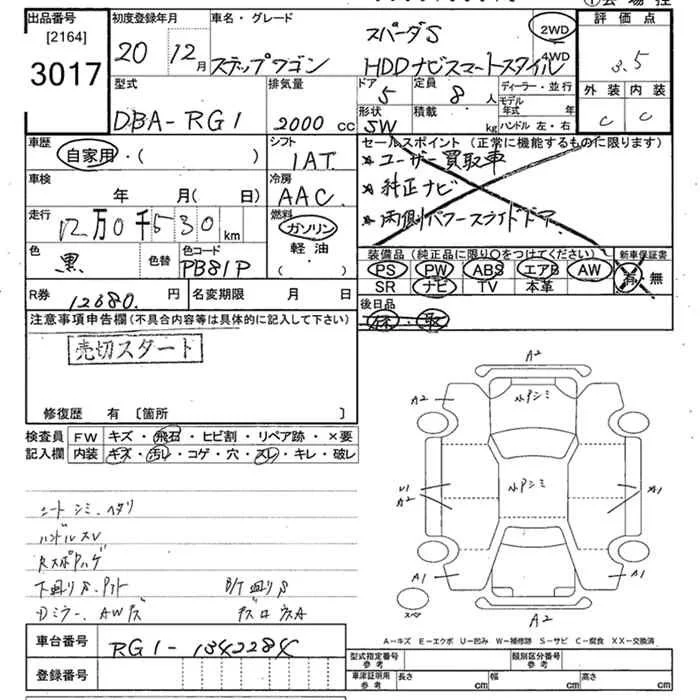 出品番号
[2164]
3017
初度登録年月
20 12月
車名・グレード
ステップワゴン
スパーダS
HDDナビスマートスタイル
2WD
4WD
評価点
3.5
外装 内装
C C
型式
DBA-RG1
排気量
2000 cc
ドア
5
形状
5W
定員
8人
積載
kg
ディーラー・並行
モデル年式 年
ハンドル 左・右
車歴
自家用・( )
シフト
1AT
セールスポイント (正常に機能するものに限ります)
* ユーザー買取車
* 純正ナビ
* 両側パワースライドドア
車検
年 月( 日)
冷房
AAC
走行
12万0千530km
燃料
ガソリン
軽油
・( )
色
黒
色替
色コード
PB81P
装備品 (純正品に限り○をつけてください)
新車保証書
PS PW ABS エアB AW
SR ナビ TV 本革
有・無
R券
12680.円
名変期限 月 日
後日品
保・取
注意事項申告欄(不具合内容等は具体的に記入して下さい)
売切スタート
修復歴 有 〔箇所 〕
検査員記入欄
FW キズ・飛石・ヒビ割・リペア跡・×要
内装 キズ・汚し・コゲ・穴・スレ・キレ・破レ
シート シミ、ヘタリ
ハンドルスレ
下廻りS、
B/T廻りS
Dミラー、AWキズ
A2
A2
水アカシミ
U1
A2
水アカシミ
A1
A1
A1
A2
スペア
A−キズ E−エクボ U−凹み W−補修跡 S−サビ C−腐食 XX−交換済
車台番号
RG1-1342284
登録番号
型式指定番号
参考
類別区分番号
参考
車検証明用
参考
長さ cm
幅 cm
高さ cm